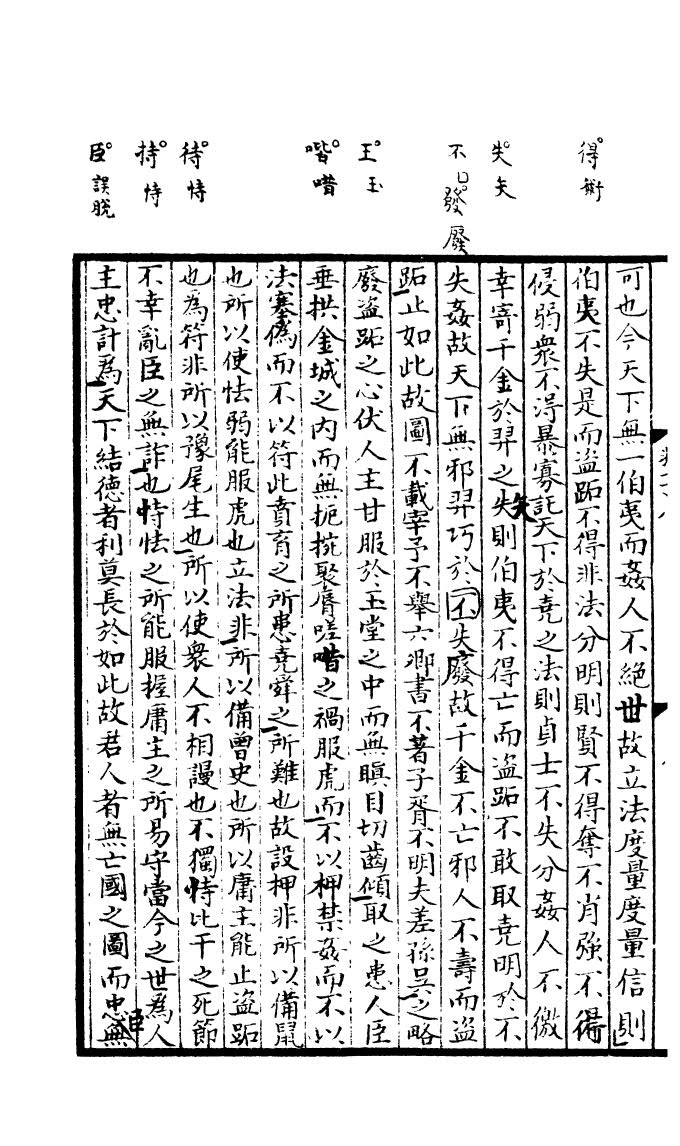 得術
失矢
不口發廢
王玉
喈唶
待恃
持恃
臣誤脫
可也今天下無一伯夷而姦人不絕世故立法度量度量信則
伯夷不失是而盜跖不得非法分明則賢不得奪不肖強不得
侵弱衆不得暴寡託天下於堯之法則貞士不失分姦人不徼
幸寄千金於羿之失矢則伯夷不得亡而盜跖不敢取堯明於不
失姦故天下無邪羿巧於不失廢故千金不亡邪人不壽而盜
跖止如此故圖不載宰予不舉六卿書不著子胥不明夫差孫吳之略
廢盜跖之心伏人主甘服於玉堂之中而無瞋目切齒傾取之患人臣
垂拱金城之內而無扼捥聚脣嗟唶之禍服虎而不以柙禁姦而不以
法塞偽而不以符此賁育之所患堯舜之所難也故設柙非所以備鼠
也所以使怯弱能服虎也立法非所以備曾史也所以庸主能止盜跖
也為符非所以豫尾生也所以使衆人不相謾也不獨恃比干之死節
不幸亂臣之無詐也恃怯之所能服握庸主之所易守當今之世為人
主忠計為天下結德者利莫長於如此故君人者無亡國之圖而忠臣無